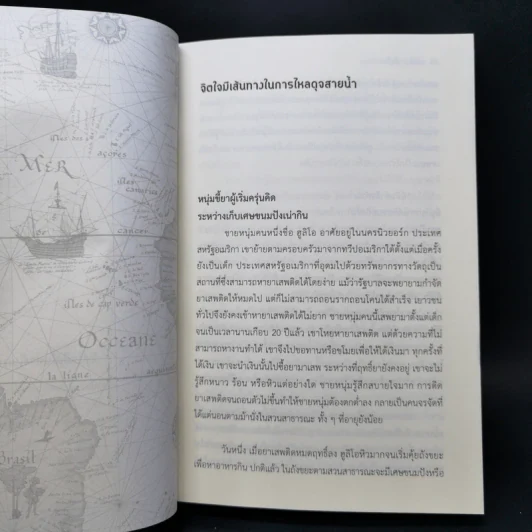 MER
açores
cancron
Isles de cap verde
OCEANE
la ligne
Brasil
จิตใจมีเส้นทางในการไหลดุจสายน้ำ
หนุ่มขี้ยาผู้เริ่มครุ่นคิด
ระหว่างเก็บเศษขนมปังเน่ากิน
ชายหนุ่มคนหนึ่งชื่อ ฮูลิโอ อาศัยอยู่ในนครนิวยอร์ก ประเทศ
สหรัฐอเมริกา เขาย้ายตามครอบครัวมาจากทวีปอเมริกาใต้ตั้งแต่เมื่อครั้ง
ยังเป็นเด็ก ประเทศสหรัฐอเมริกาที่อุดมไปด้วยทรัพยากรทางวัตถุเป็น
สถานที่ซึ่งสามารถหายาเสพติดได้โดยง่าย แม้ว่ารัฐบาลจะพยายามกำจัด
ยาเสพติดให้หมดไป แต่ก็ไม่สามารถถอนรากถอนโคนได้สำเร็จ เยาวชน
ทั่วไปจึงยังคงเข้าหายาเสพติดได้ไม่ยาก ชายหนุ่มคนนี้เสพยามาตั้งแต่เด็ก
จนเป็นเวลานานเกือบ 20 ปีแล้ว เขาโหยหายาเสพติด แต่ด้วยความที่ไม่
สามารถหางานทำได้ เขาจึงไปขอทานหรือขโมยเพื่อให้ได้เงินมา ทุกครั้งที่
ได้เงิน เขาจะนำเงินนั้นไปซื้อยามาเสพ ระหว่างที่ฤทธิ์ยายังคงอยู่ เขาจะไม่
รู้สึกหนาว ร้อน หรือหิวแต่อย่างใด ชายหนุ่มรู้สึกสบายใจมาก การติด
ยาเสพติดจนถอนตัวไม่ขึ้นทำให้ชายหนุ่มต้องตกต่ำลง กลายเป็นคนจรจัดที่
ได้แต่นอนตามม้านั่งในสวนสาธารณะ ทั้ง ๆ ที่อายุยังน้อย
วันหนึ่ง เมื่อยาเสพติดหมดฤทธิ์ลง ฮูลิโอหิวมากจนเริ่มคุ้ยถังขยะ
เพื่อหาอาหารกิน ปกติแล้ว ในถังขยะตามสวนสาธารณะจะมีเศษขนมปังหรือ